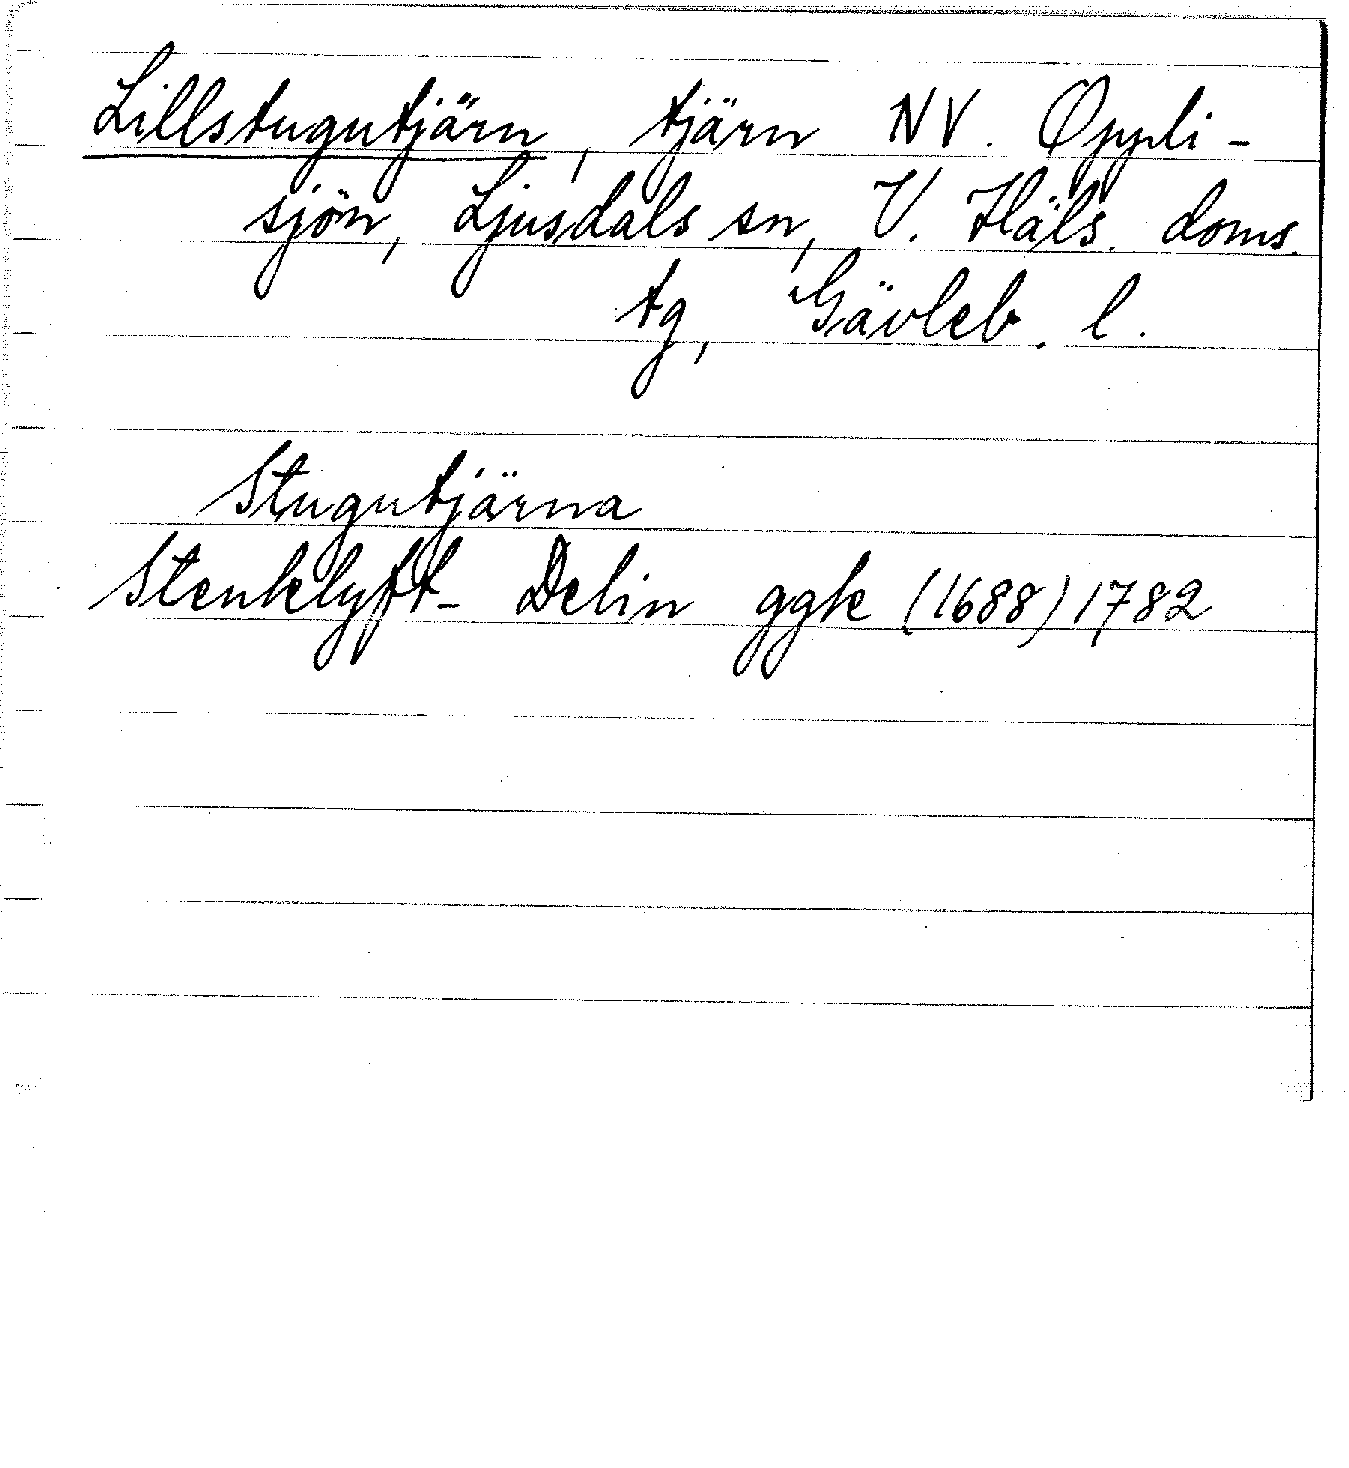 Lillstugutjärn, tjärn NV. Öppli-
sjön, Ljusdals sn, V. Häls. doms.
tg, Gävleb. l.
Stugutjärna
Stenklyft- Delin ggk (1688) 1782